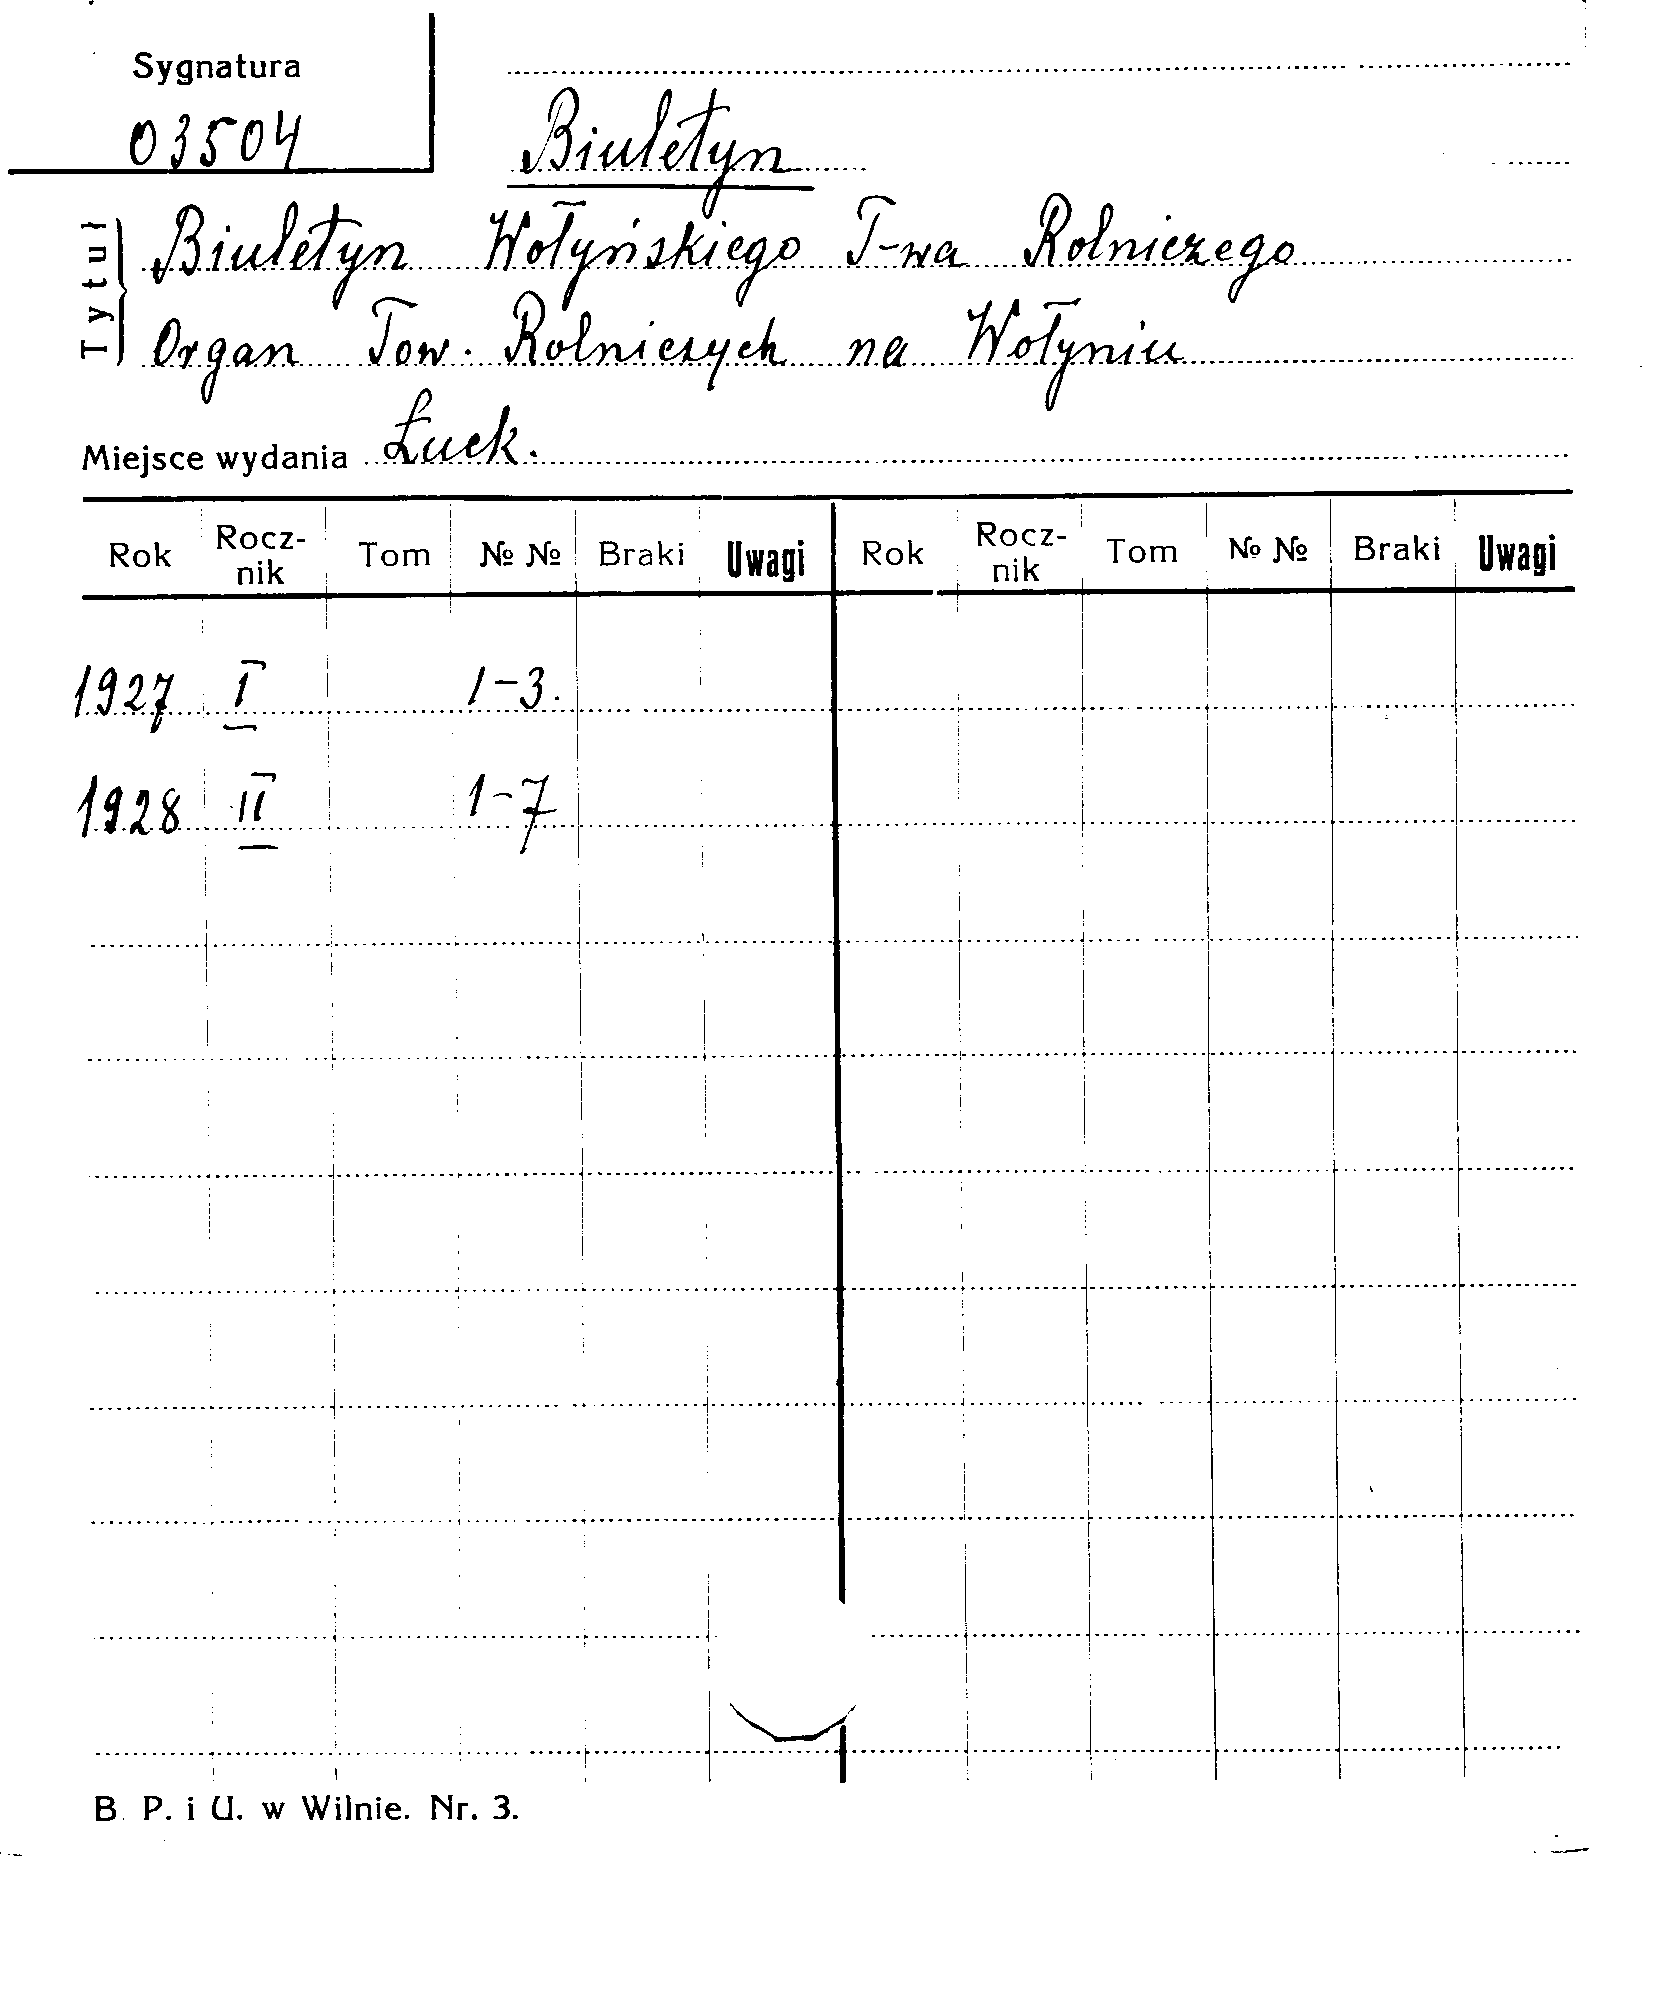 Sygnatura
03504
Biuletyn
Tytuł
Biuletyn Wołyńskiego T-wa Rolniczego
Organ Tow. Rolniczych na Wołyniu
Miejsce wydania Łuck.
Rok Rocz-nik Tom № № Braki Uwagi Rok Rocz-nik Tom № № Braki Uwagi
1927 I 1-3.
1928 II 1-7
B. P. i U. w Wilnie. Nr. 3.